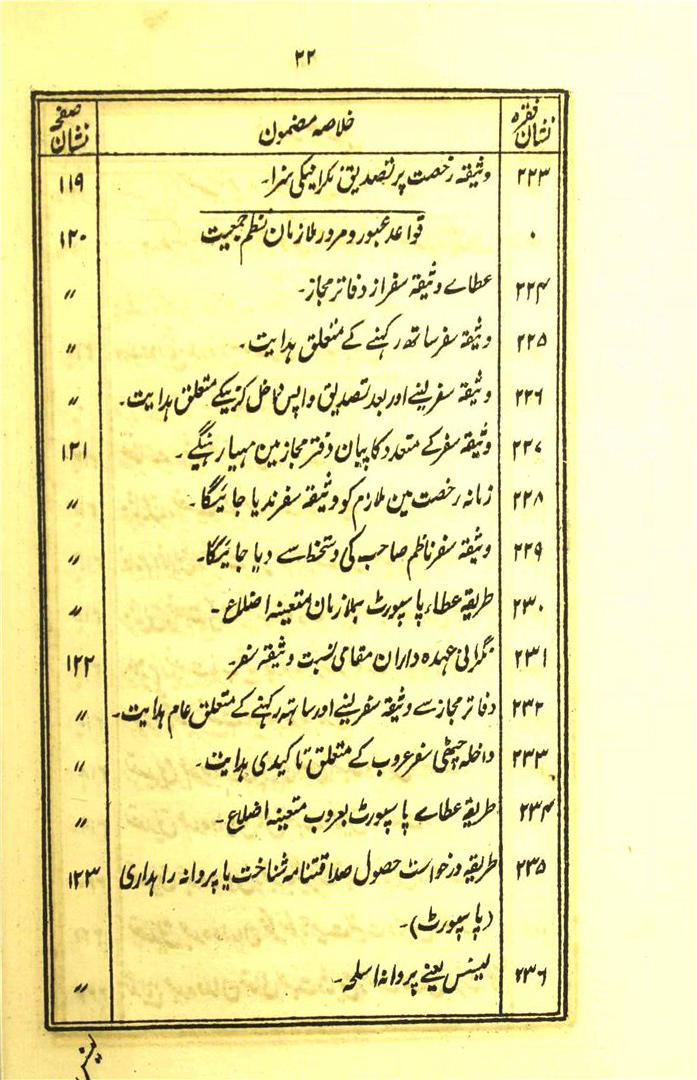 ۲۲
نشان فقرہ | خلاصہ مضمون | نشان صفحہ
۲۲۳ | وثیقہ رخصت پر تصدیق نکرانیکی سزا۔ | ۱۱۹
۰ | قواعد عبور و مرور ملازمان نظم جمعیت | ۱۲۰
۲۲۴ | عطاے وثیقہ سفر از دفاتر مجاز۔ | 〃
۲۲۵ | وثیقہ سفر ساتھ رکہنے کے متعلق ہدایت۔ | 〃
۲۲۶ | وثیقہ سفر لینے اور بعد تصدیق واپس داخل کرنیکے متعلق ہدایت۔ | 〃
۲۲۷ | وثیقہ سفر کے متعدد کاپیان دفتر مجاز مین مہیا رہینگے۔ | ۱۲۱
۲۲۸ | زمانہ رخصت مین ملازم کو وثیقہ سفر ندیا جائیگا۔ | 〃
۲۲۹ | وثیقہ سفر ناظم صاحب کی دستخط سے دیا جائیگا۔ | 〃
۲۳۰ | طریقہ عطاء پاسپورٹ بملازمان متعینہ اضلاع۔ | 〃
۲۳۱ | نگرانی عہدہ داران مقامی نسبت وثیقہ سفر۔ | ۱۲۲
۲۳۲ | دفاتر مجاز سے وثیقہ سفر لینے اور ساتہہ رکہنے کے متعلق عام ہدایت۔ | 〃
۲۳۳ | داخلہ چٹھی سفر عروب کے متعلق تاکیدی ہدایت۔ | 〃
۲۳۴ | طریقہ عطاے پاسپورٹ بعروب متعینہ اضلاع۔ | 〃
۲۳۵ | طریقہ درخواست حصول صداقتنامہ شناخت یا پروانہ راہداری | ۱۲۳
(پاسپورٹ)۔
۲۳۶ | لیسنس یعنے پروانہ اسلحہ۔ | 〃
لیسنس